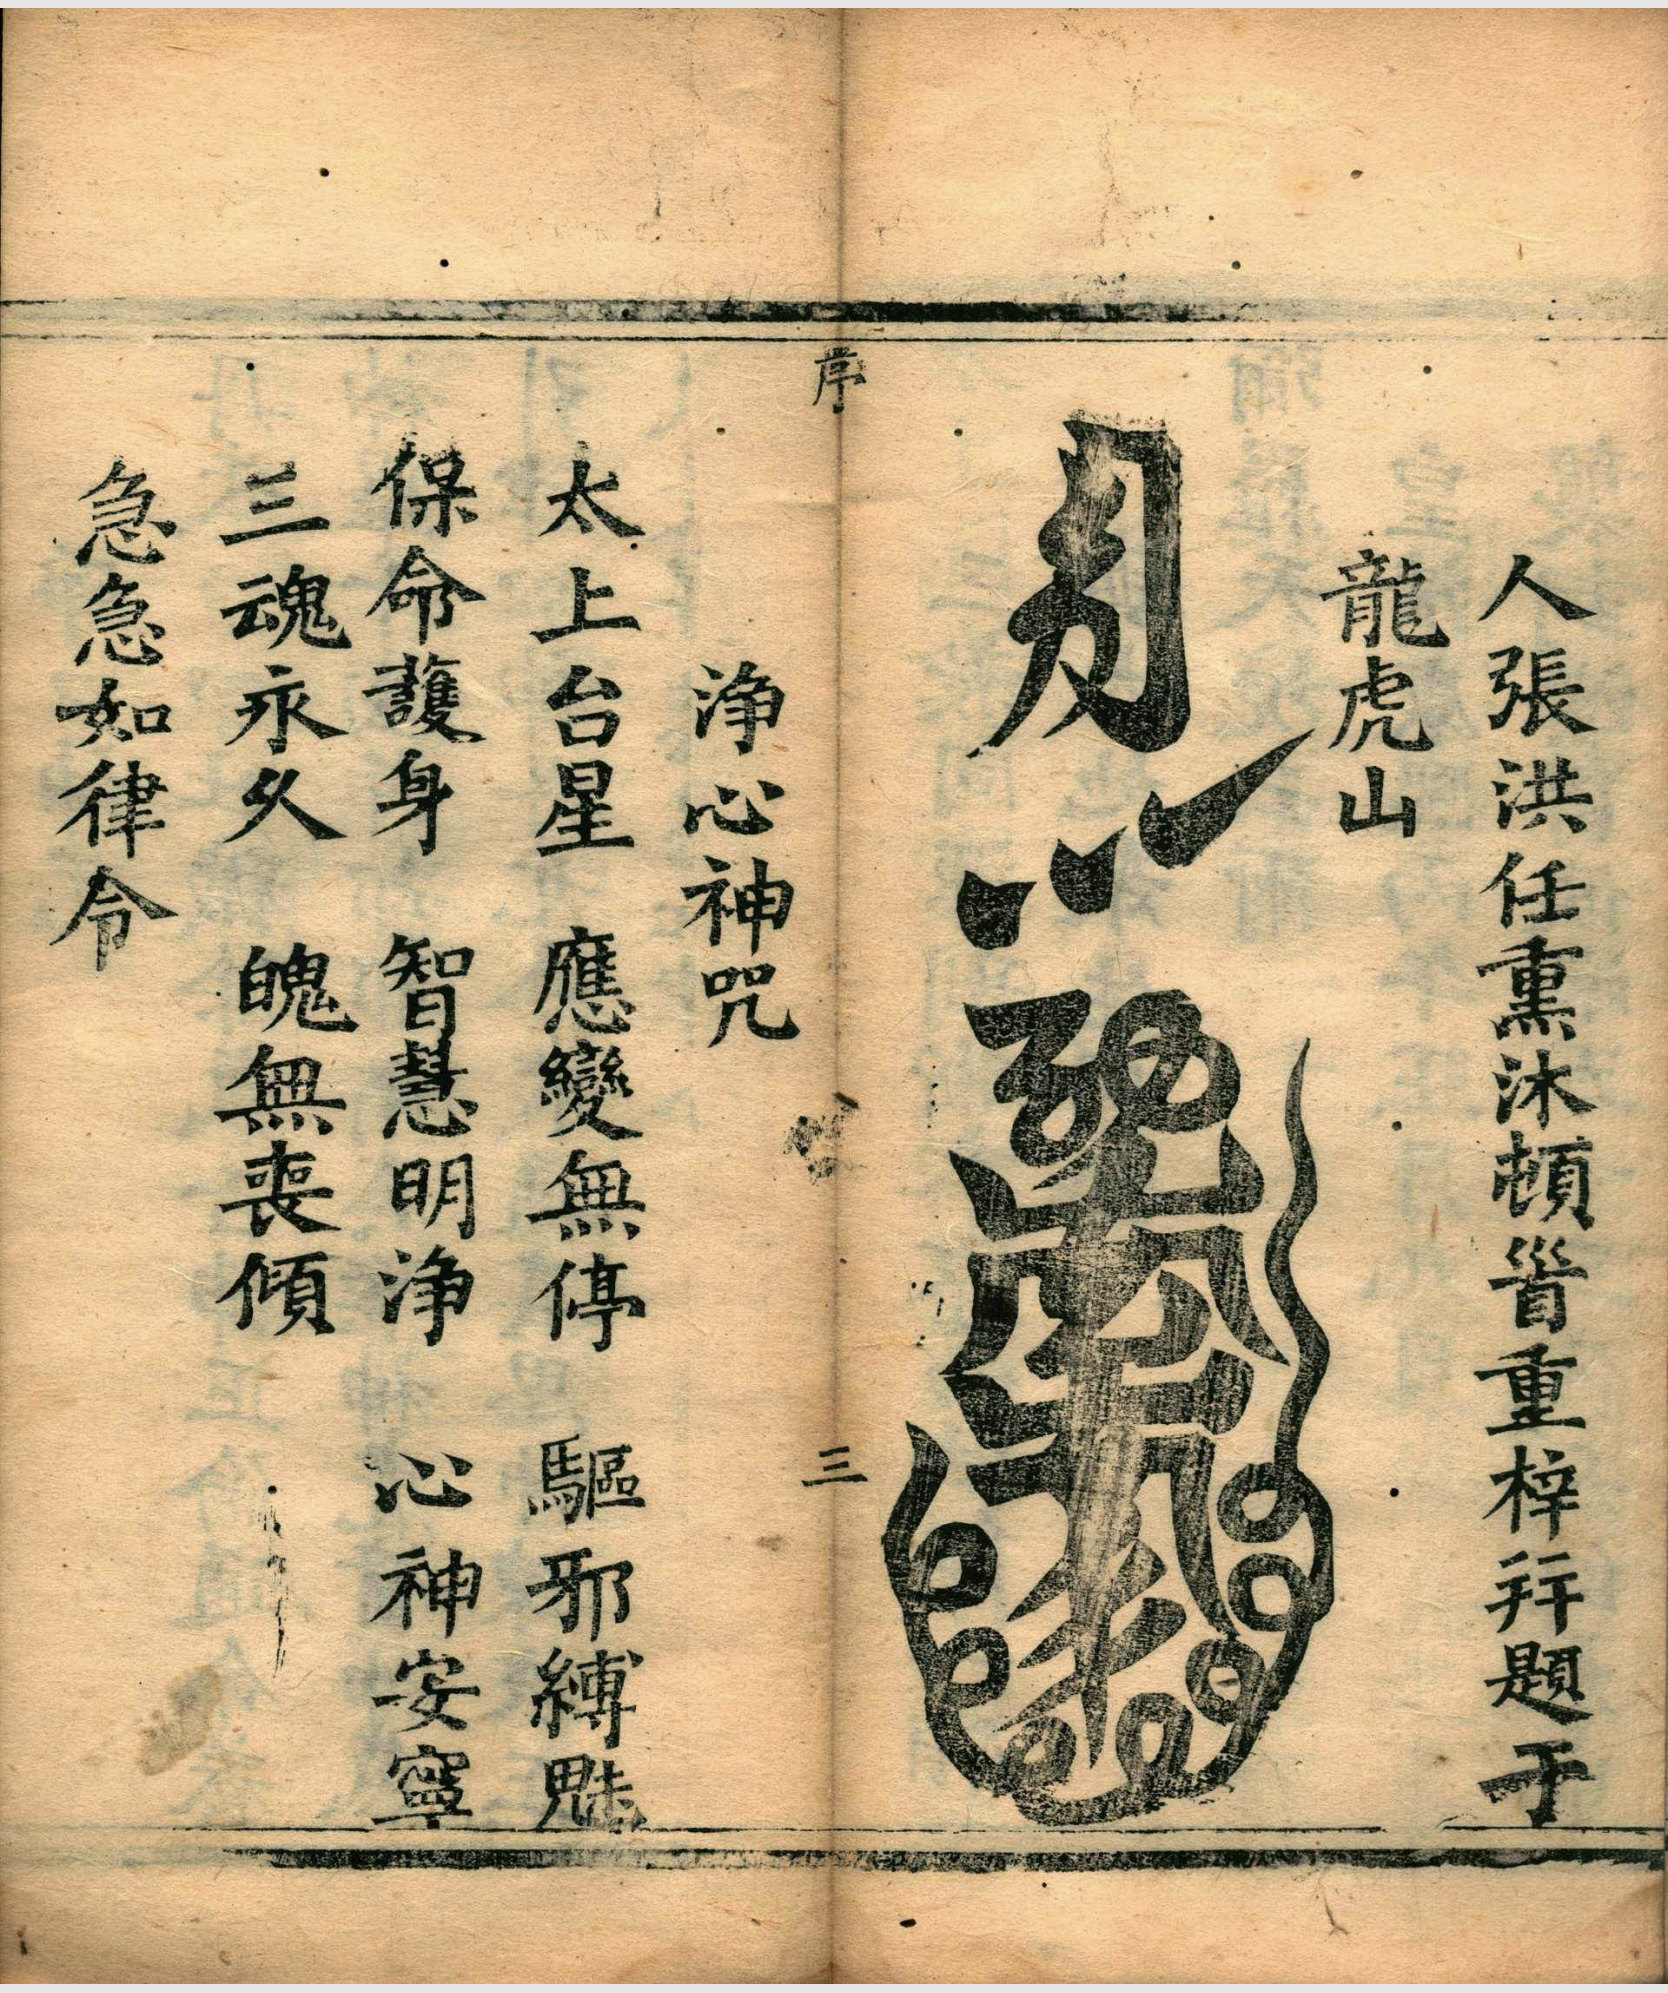 人張洪任熏沐頓首重梓并題于
龍虎山
序
三
浄心神咒
太上台星 應變無停 驅邪縛魅
保命護身 智慧明浄 心神安寧
三魂永久 魄無喪傾
急急如律令